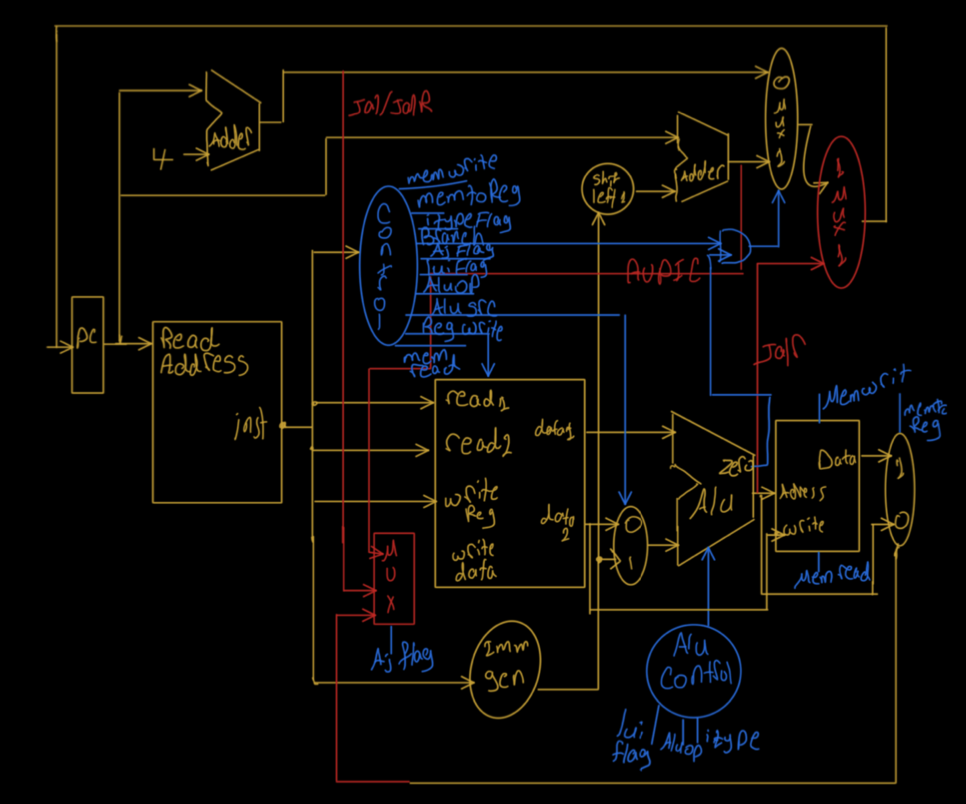 Jal/JalR
Adder
4
0
mux
1
shift
left 1
Adder
1
mux
1
Control
memwrite
memtoReg
itypeFlag
Branch
AjFlag
luiFlag
AluOP
Alu src
Reg write
mem
read
AUPIC
JalR
PC
Read
Address
inst
read1
read2
write
Reg
write
data
data1
data
2
0
1
zero
Alu
Memwrit
Data
Adress
write
Memread
memto
Reg
1
0
MUX
Aj flag
Imm
gen
Alu
Control
lui
flag
Aluop
itype